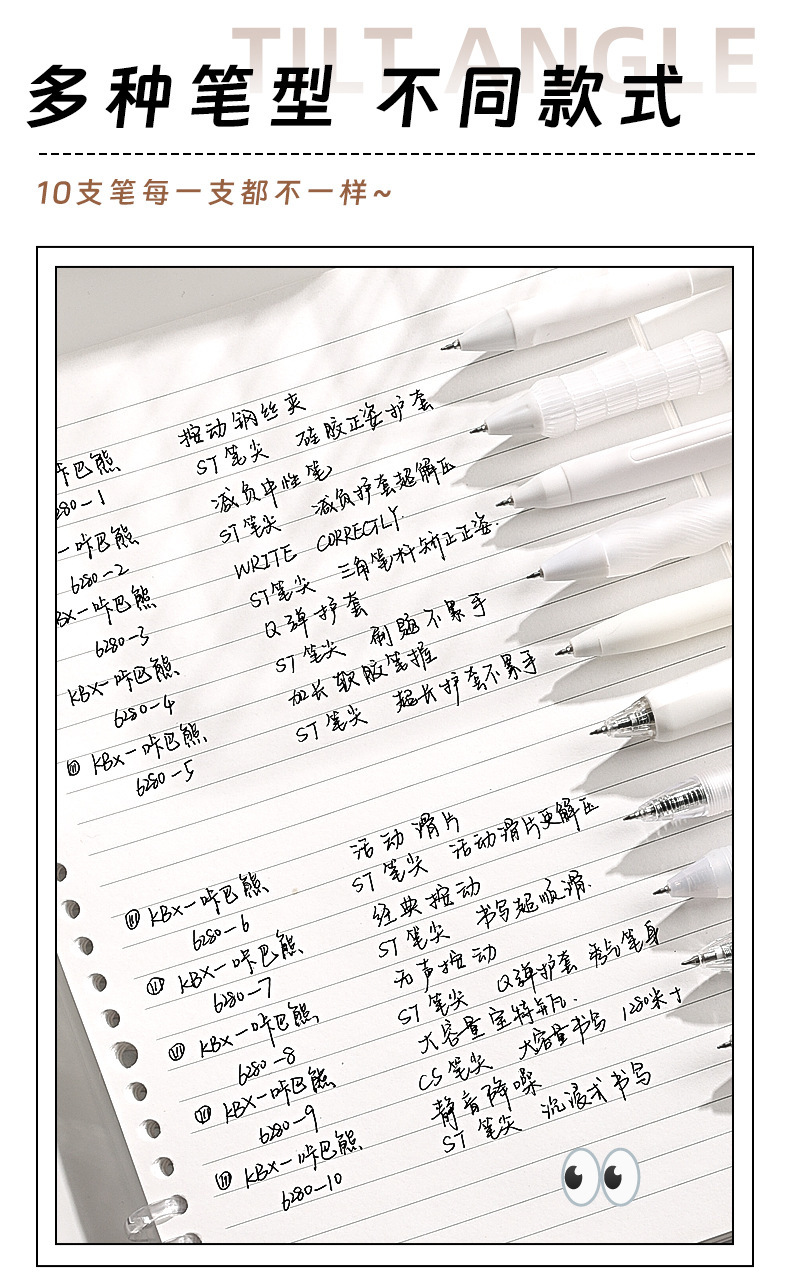 TILT ANGLE
多种笔型 不同款式
10支笔每一支都不一样~
咔巴熊 按动钢丝夹
280-1 ST笔尖 硅胶正姿护套
-咔巴熊 减负中性笔
6280-2 ST笔尖 减负护套超解压
BX-咔巴熊 WRITE CORRECTLY
6280-3 ST笔尖 三角笔杆矫正正姿.
KBX-咔巴熊 Q弹护套
6280-4 ST笔尖 刷题不累手
KBX-咔巴熊 加长软胶笔握
6280-5 ST笔尖 超长护套不累手
KBX-咔巴熊 活动滑片
6280-6 ST笔尖 活动滑片更解压
KBX-咔巴熊 经典按动
6280-7 ST笔尖 书写超顺滑.
KBX-咔巴熊 无声按动
6280-8 ST笔尖 Q弹护套 笔身
KBX-咔巴熊 大容量宝特瓶.
6280-9 CS笔尖 大容量书写 1280米+
KBX-咔巴熊 静音降噪
6280-10 ST笔尖 沉浸式书写